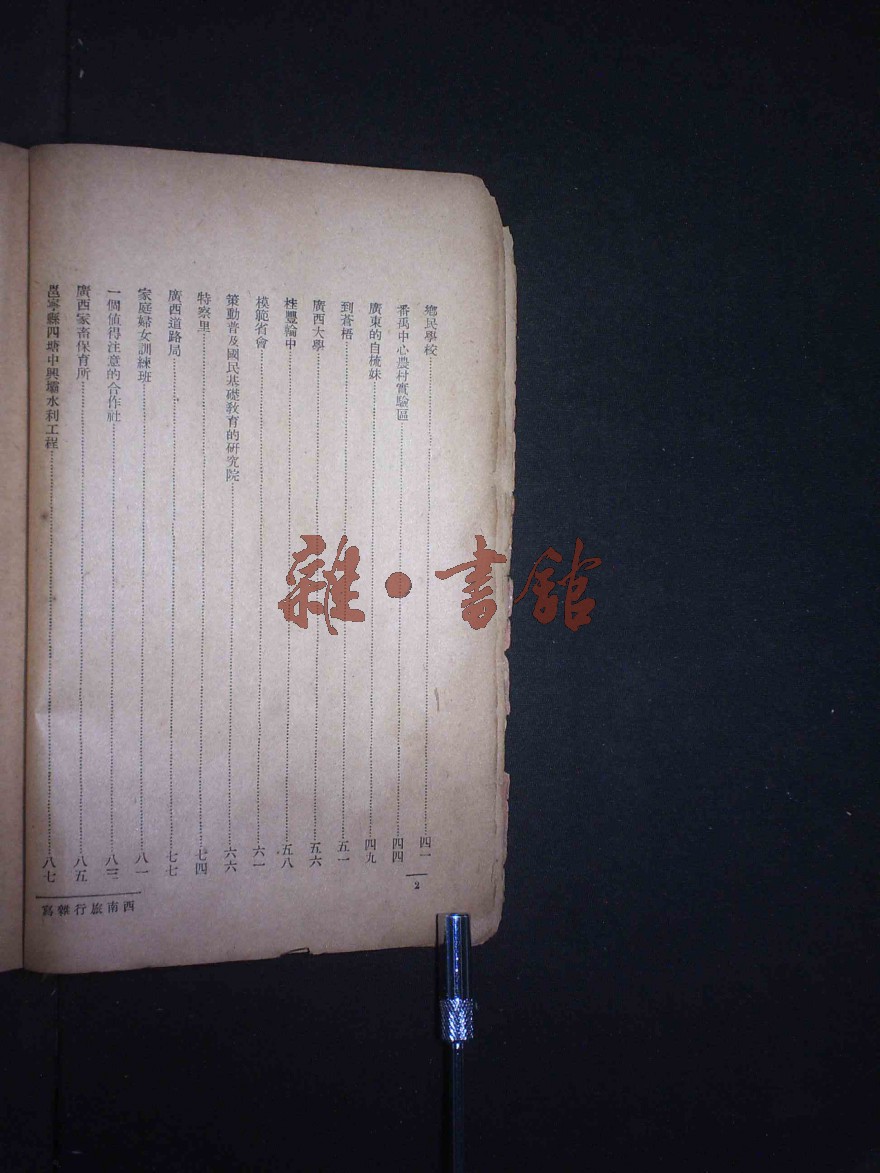 鄉民學校……四一
番禺中心農村實驗區……四四
廣東的自梳妹……四九
到蒼梧……五一
廣西大學……五六
桂豐輪中……五八
模範省會……六一
策動普及國民基礎敎育的研究院……六六
特察里……七四
廣西道路局……七七
家庭婦女訓練班……八一
一個値得注意的合作社……八三
廣西家畜保育所……八五
邕寧縣四塘中興壩水利工程……八七
2
寫雜行旅南西
雜·書館